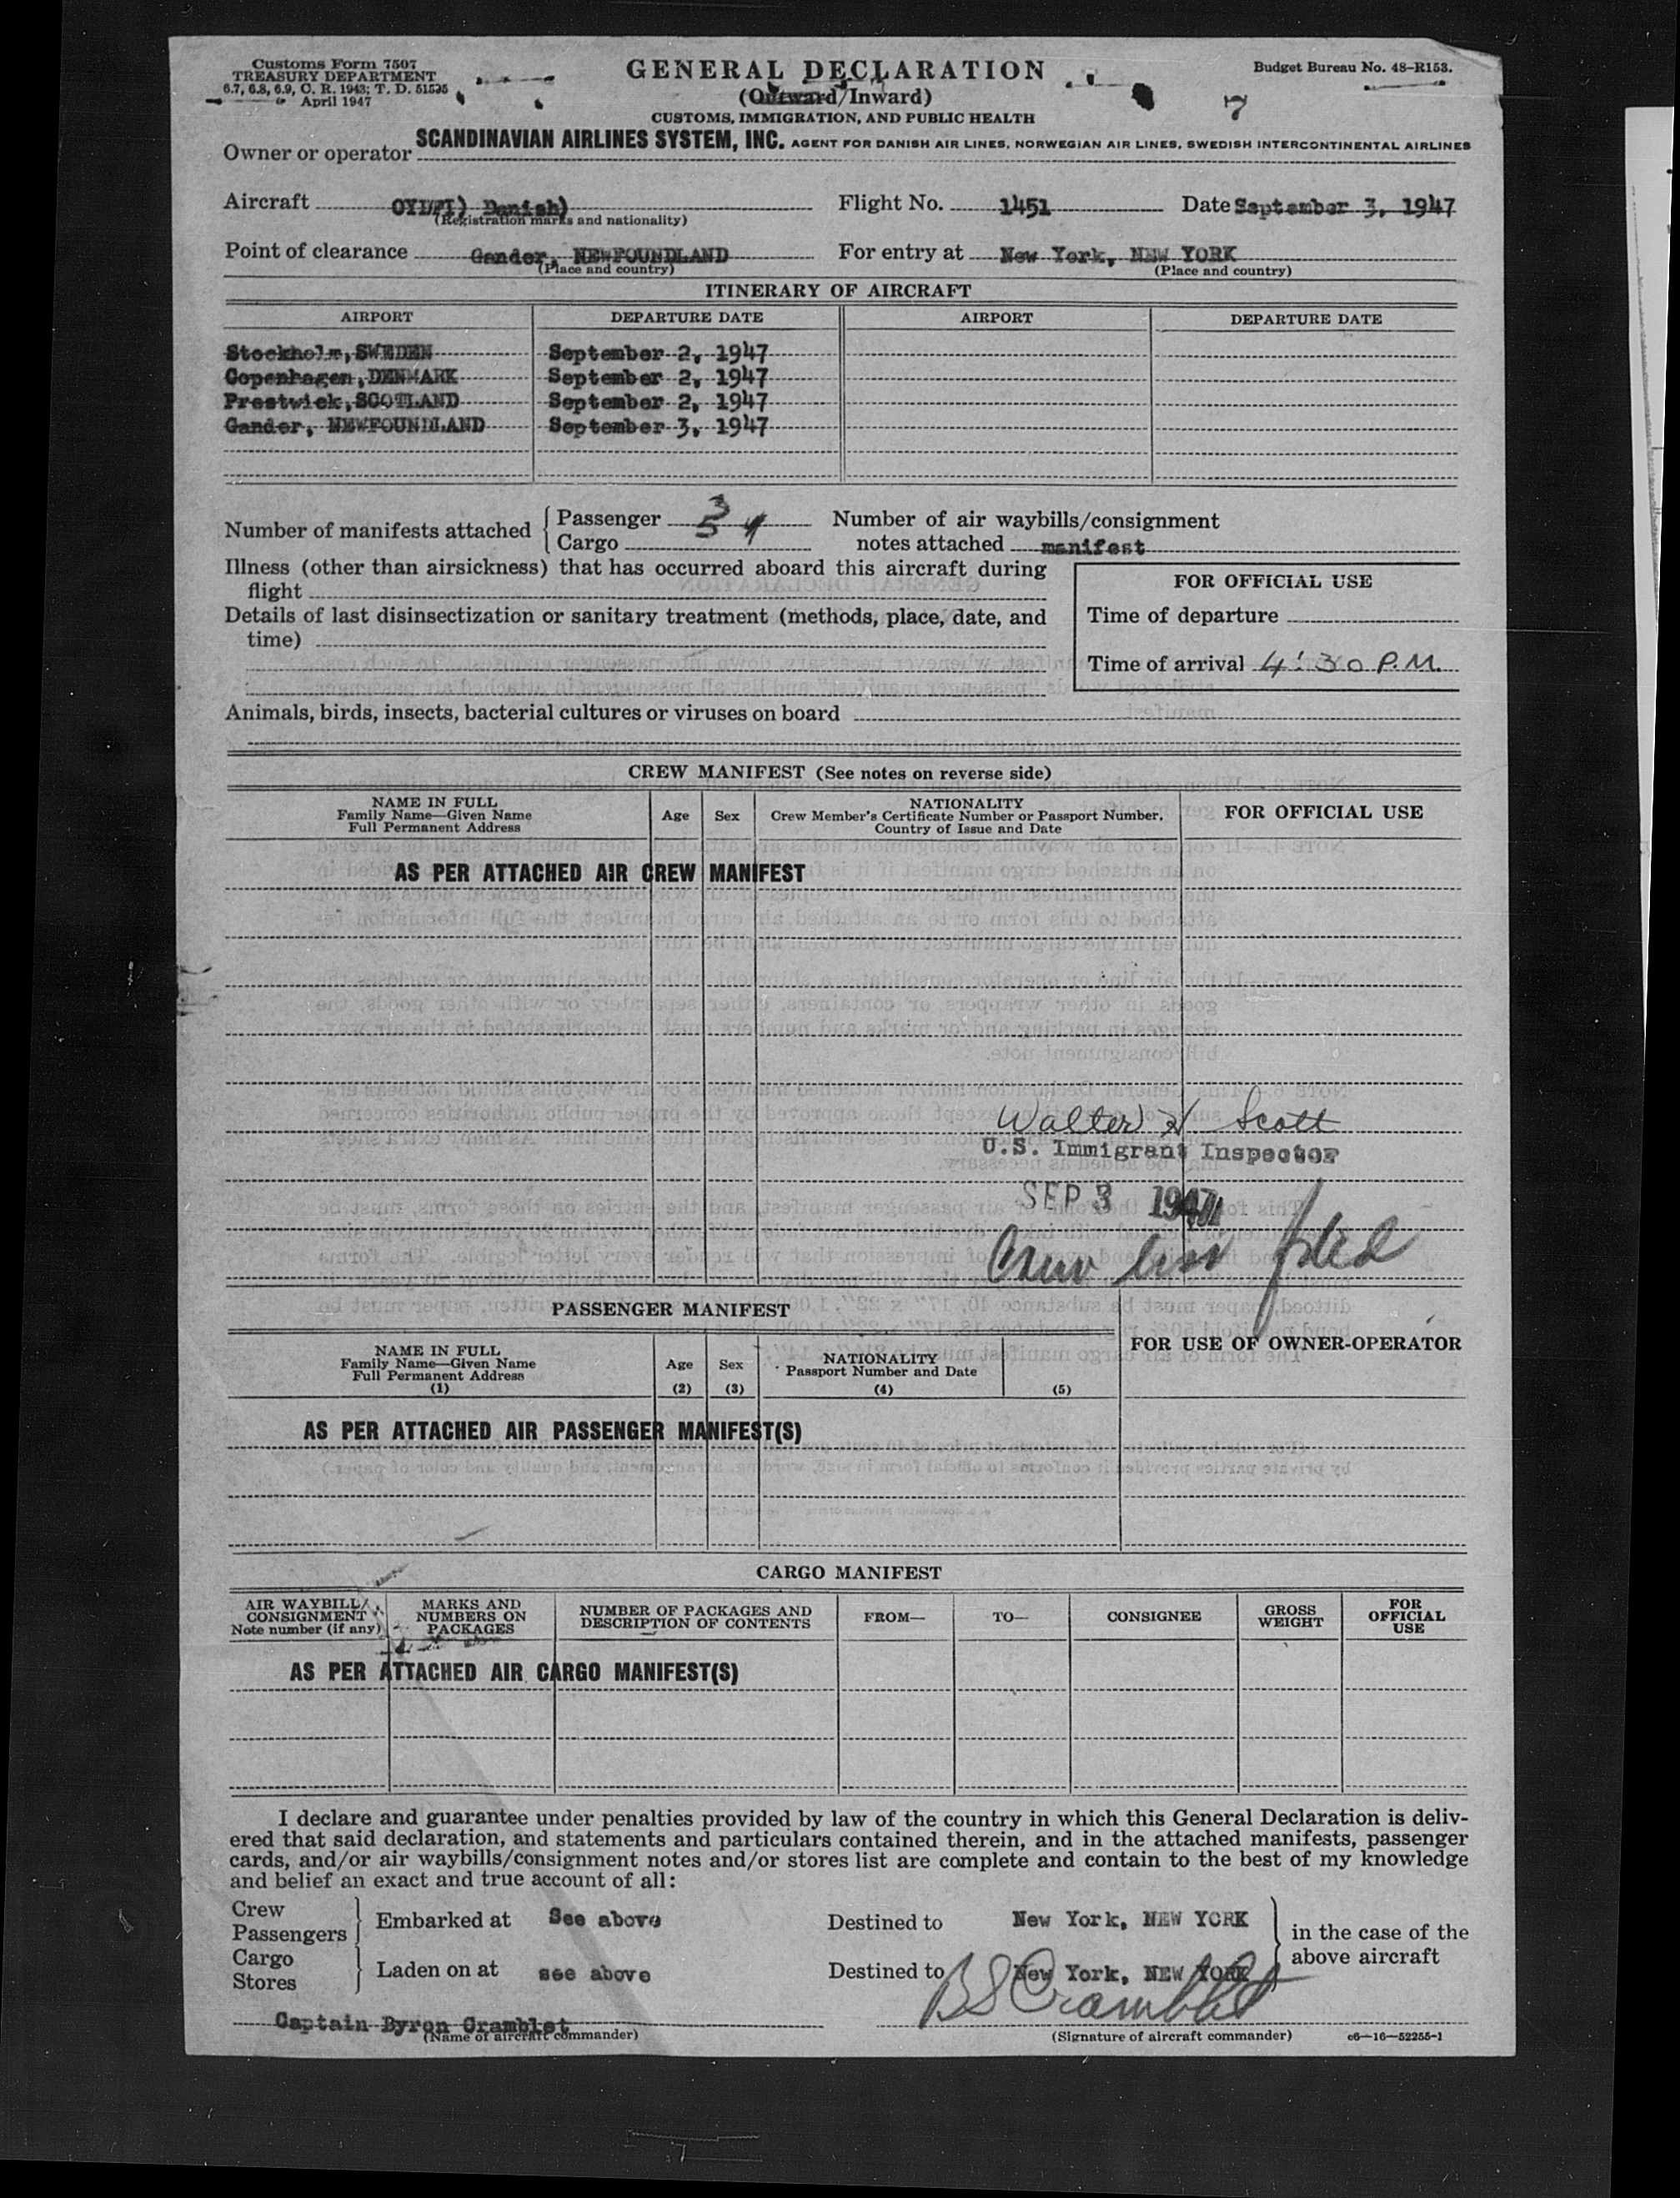 Customs Form 7507
TREASURY DEPARTMENT
6.7, 6.8, 6.9, C. R. 1943; T. D. 51525
April 1947
GENERAL DECLARATION
(Outward/Inward)
CUSTOMS, IMMIGRATION, AND PUBLIC HEALTH
Budget Bureau No. 48-R153.
7
Owner or operator SCANDINAVIAN AIRLINES SYSTEM, INC. AGENT FOR DANISH AIR LINES, NORWEGIAN AIR LINES, SWEDISH INTERCONTINENTAL AIRLINES
Aircraft Danish) Flight No. 1451 Date September 3, 1947
(Registration marks and nationality)
Point of clearance Gander, NEWFOUNDLAND For entry at New York, NEW YORK
(Place and country) (Place and country)
ITINERARY OF AIRCRAFT
AIRPORT DEPARTURE DATE AIRPORT DEPARTURE DATE
Stockholm, SWEDEN September 2, 1947
Copenhagen, DENMARK September 2, 1947
Prestwick, SCOTLAND September 2, 1947
Gander, NEWFOUNDLAND September 3, 1947
Number of manifests attached { Passenger 3
Cargo
Number of air waybills/consignment
notes attached manifest
Illness (other than airsickness) that has occurred aboard this aircraft during
flight
Details of last disinsectization or sanitary treatment (methods, place, date, and
time)
FOR OFFICIAL USE
Time of departure
Time of arrival 4:30 P.M.
Animals, birds, insects, bacterial cultures or viruses on board
CREW MANIFEST (See notes on reverse side)
NAME IN FULL
Family Name—Given Name
Full Permanent Address
Age
Sex
NATIONALITY
Crew Member's Certificate Number or Passport Number,
Country of Issue and Date
FOR OFFICIAL USE
AS PER ATTACHED AIR CREW MANIFEST
Walter H Scott
U.S. Immigrant Inspector
SEP 3 1947
Crew list filed
PASSENGER MANIFEST
FOR USE OF OWNER-OPERATOR
NAME IN FULL
Family Name—Given Name
Full Permanent Address
(1)
Age
(2)
Sex
(3)
NATIONALITY
Passport Number and Date
(4)
(5)
AS PER ATTACHED AIR PASSENGER MANIFEST(S)
CARGO MANIFEST
AIR WAYBILL/
CONSIGNMENT
Note number (if any)
MARKS AND
NUMBERS ON
PACKAGES
NUMBER OF PACKAGES AND
DESCRIPTION OF CONTENTS
FROM—
TO—
CONSIGNEE
GROSS
WEIGHT
FOR
OFFICIAL
USE
AS PER ATTACHED AIR CARGO MANIFEST(S)
I declare and guarantee under penalties provided by law of the country in which this General Declaration is deliv-
ered that said declaration, and statements and particulars contained therein, and in the attached manifests, passenger
cards, and/or air waybills/consignment notes and/or stores list are complete and contain to the best of my knowledge
and belief an exact and true account of all:
Crew
Passengers
Embarked at See above Destined to New York, NEW YORK
Cargo
Stores
Laden on at see above Destined to New York, NEW YORK
in the case of the
above aircraft
Captain Byron Cramblet
(Name of aircraft commander)
B S Cramblet
(Signature of aircraft commander)
c6—16—52255-1